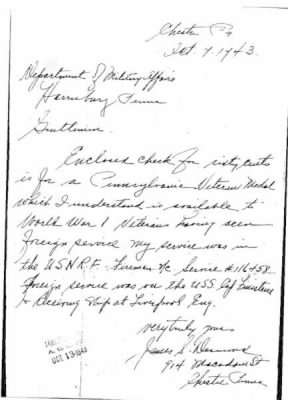 Chester Pa
Oct 7-1943.
Department of Military Affairs
Harrisburg Penna
Gentlemen
Enclosed check for sixty cents
is for a Pennsylvania Veteran Medal
which I understand is available to
World War 1 Veterans having seen
foreign service My service was in
the U.S.N.R.F. Fireman Service #116458
foreign service was on the USS
& Receiving Ship at Liverpool Eng.
very truly yours
James S.
914 St
Chester Penna
OCT 13 1943